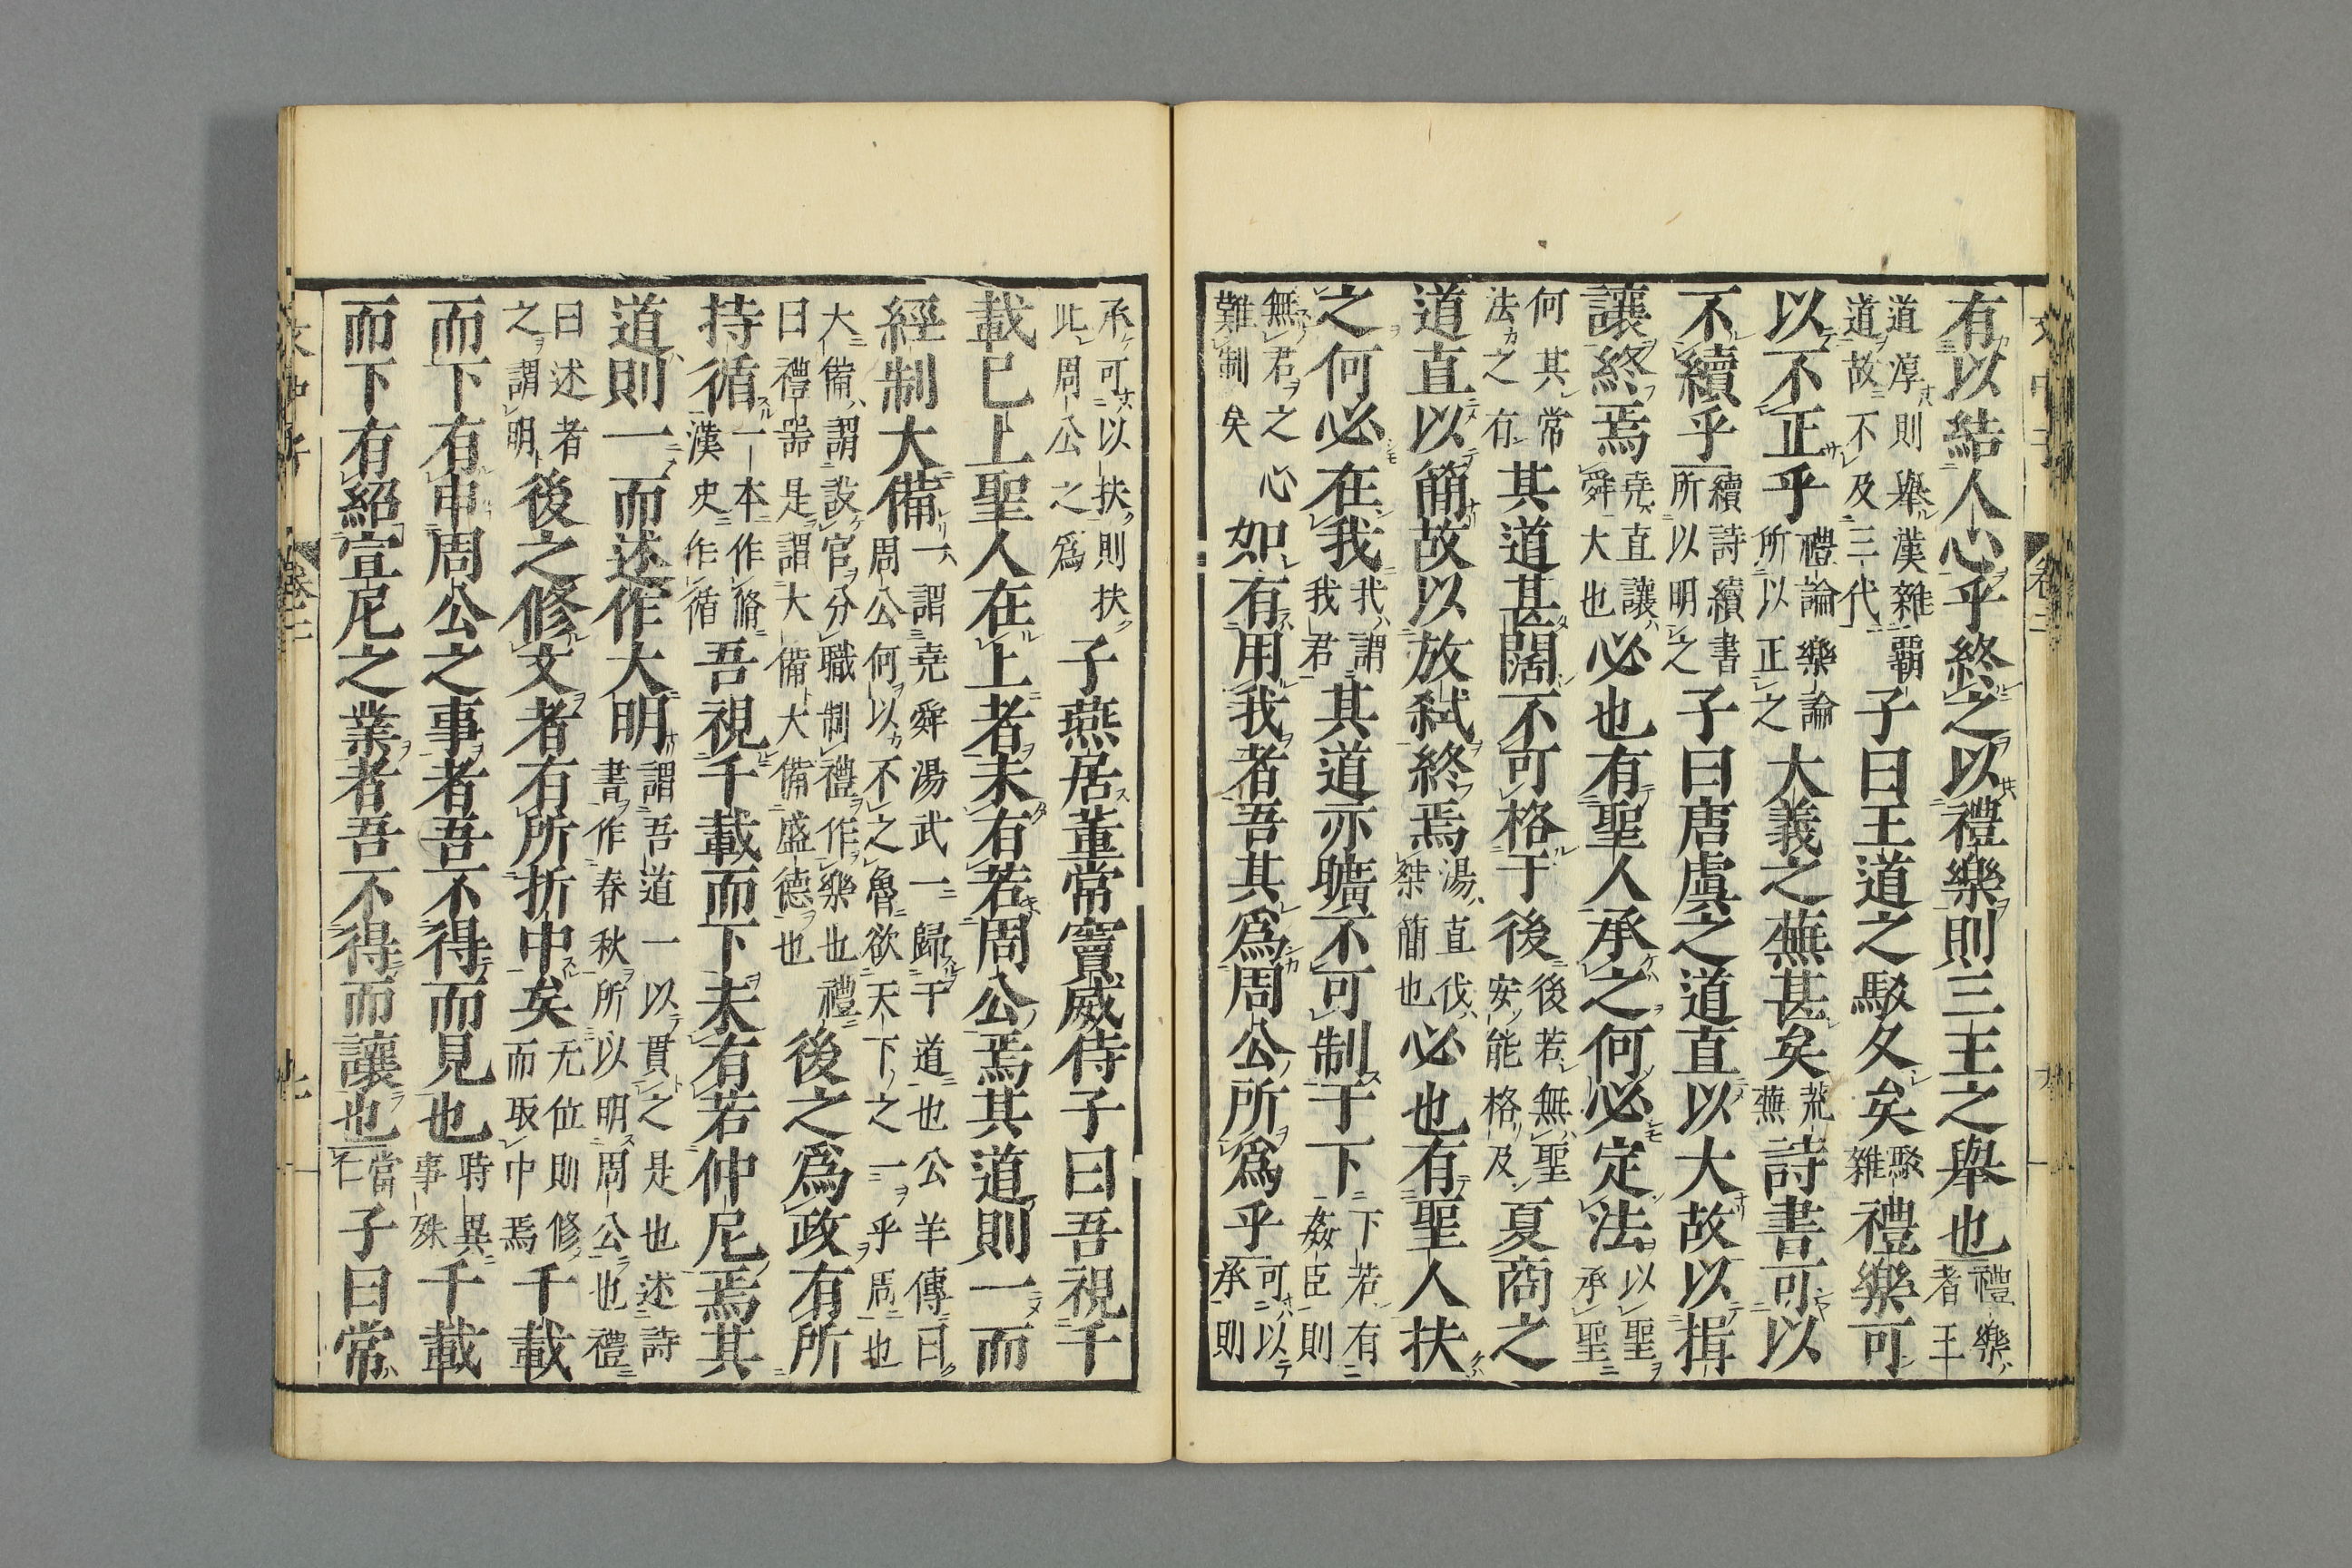 有以結人心乎終之以禮樂則三王之舉也禮樂者王
道淳則舉漢雜霸道故不及三代子曰王道之駁久矣駁雜禮樂可
以不正乎禮論樂論所以正之大義之蕪甚矣荒蕪詩書可以
不續乎續詩續書所以明之子曰唐虞之道直以大故以揖
讓終焉堯直讓舜大也必也有聖人承之何必定法以聖承聖
何其常法之有其道甚闊不可格于後後若無聖安能格及夏商之
道直以簡故以放弑終焉湯直伐桀簡也必也有聖人扶
之何必在我我謂我君其道亦曠不可制于下下若有姦臣則
無君之心難制矣如有用我者吾其爲周公所爲乎可以承則
承可以扶則扶此周公之爲子燕居董常竇威侍子曰吾視千
載已上聖人在上者未有若周公焉其道則一而
經制大備一謂堯舜湯武一歸于道也公羊傳曰周公何以不之魯欲天下之一乎周也
大備謂設官分職制禮作樂也禮曰禮器是謂大備大備盛德也後之爲政有所
持循一本作脩漢史作循吾視千載而下未有若仲尼焉其
道則一而述作大明謂吾道一以貫之是也述詩書作春秋所以明周公也禮
曰述者之謂明後之修文者有所折中矣无位則修而取中焉千載
而下有申周公之事者吾不得而見也時異事殊千載
而下有紹宣尼之業者吾不得而讓也當仁子曰常